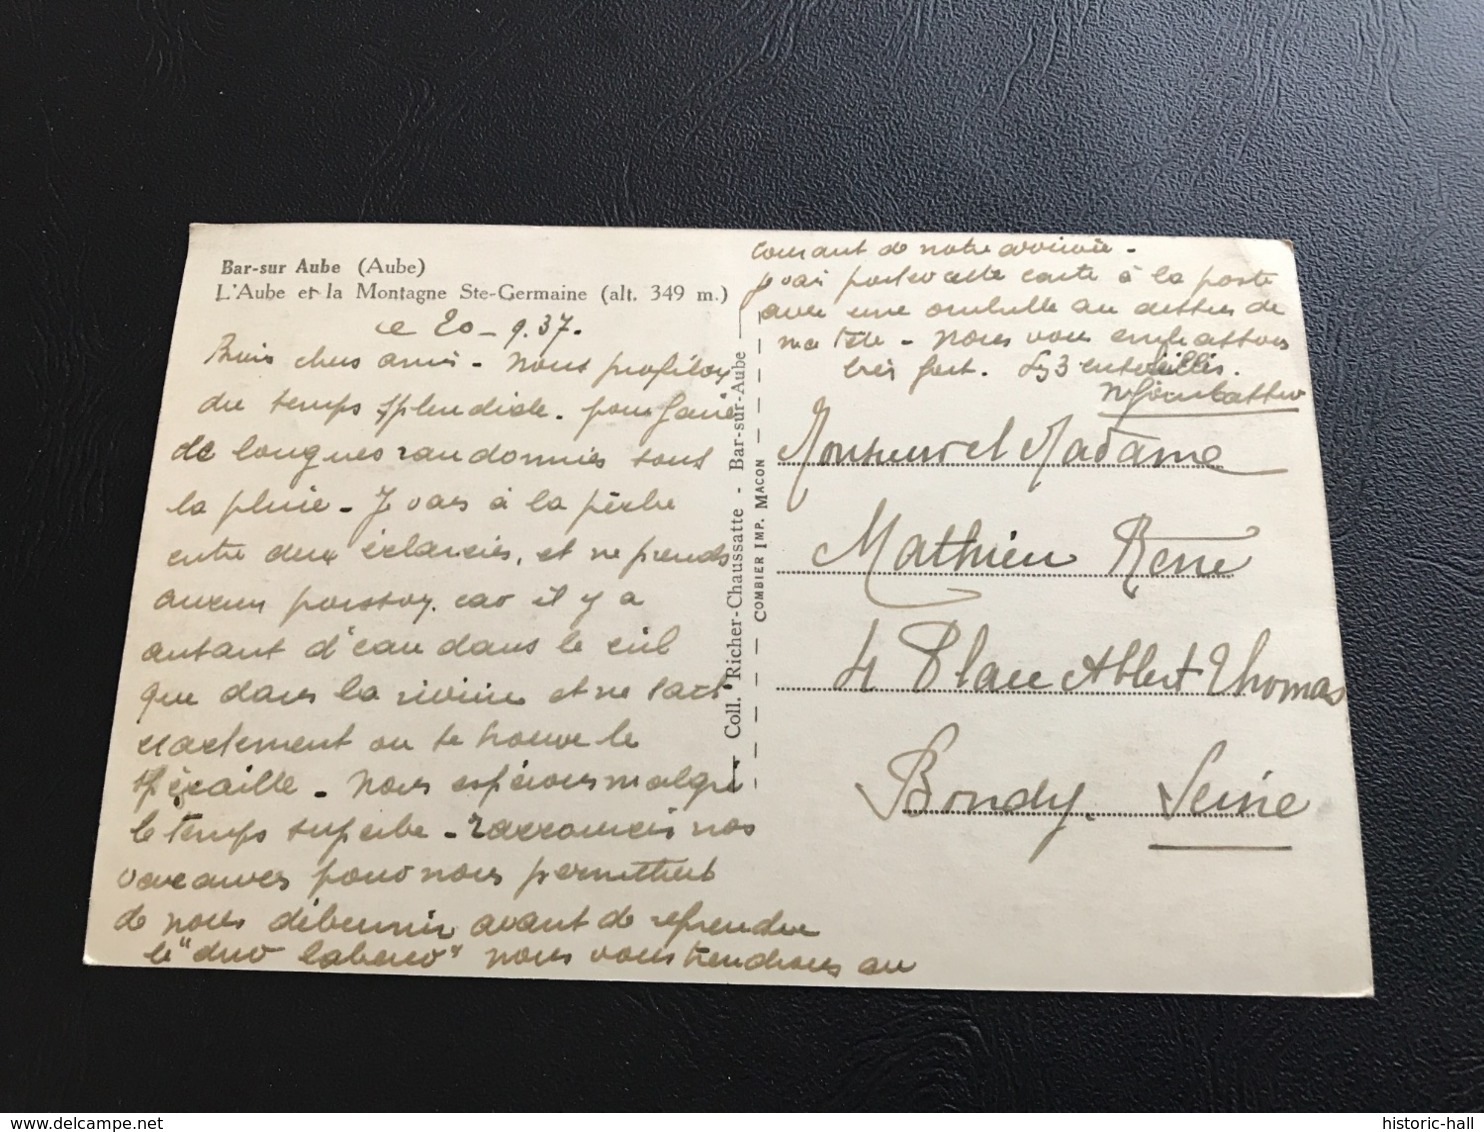 Bar-sur Aube (Aube)
L'Aube et la Montagne Ste-Germaine (alt. 349 m.)
Ce 20-9.37.
Bien chers amis - Nous profitons
du temps splendide pour faire
de longues randonnées sous
la pluie - Je vais à la pêche
entre deux éclaircies, et ne prends
aucun poisson, car il y a
autant d'eau dans le ciel
que dans la rivière et ne sait
exactement ou se trouve le
- Nous espérons malgré
le temps superbe - nos
vacances pour nous permettent
de nous avant de reprendre
le "dur labeur" nous vous tiendrons au
courant de notre arrivée -
Je vais porter cette carte à la poste
avec une ombrelle au dessus de
ma tête - Nous vous embrassons
très fort. Les 3
Coll. Richer-Chaussatte - Bar-sur-Aube
COMBIER IMP. MACON
Monsieur et Madame
Mathieu René
4 Place Albert Thomas
Bondy. Seine
historic-hall